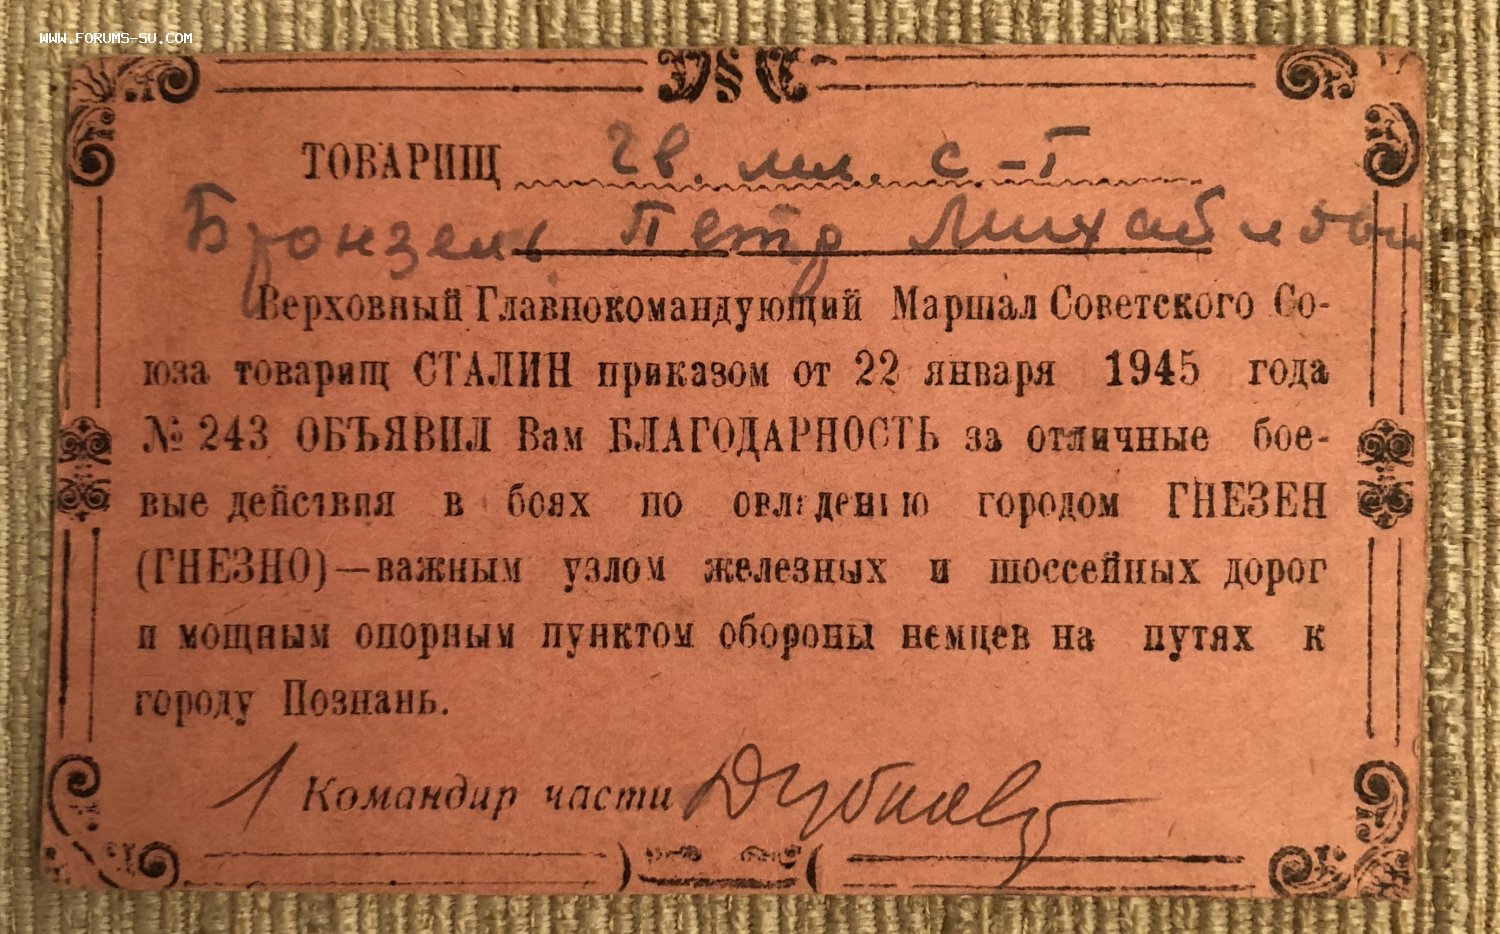 WWW.FORUMS-SU.COM
ТОВАРИЩ гв. мл. с-т
Бронзель Петр Михайлович
Верховный Главнокомандующий Маршал Советского Со-
юза товарищ СТАЛИН приказом от 22 января 1945 года
№ 243 ОБЪЯВИЛ Вам БЛАГОДАРНОСТЬ за отличные бое-
вые действия в боях по овладению городом ГНЕЗЕН
(ГНЕЗНО)—важным узлом железных и шоссейных дорог
и мощным опорным пунктом обороны немцев на путях к
городу Познань.
Командир части